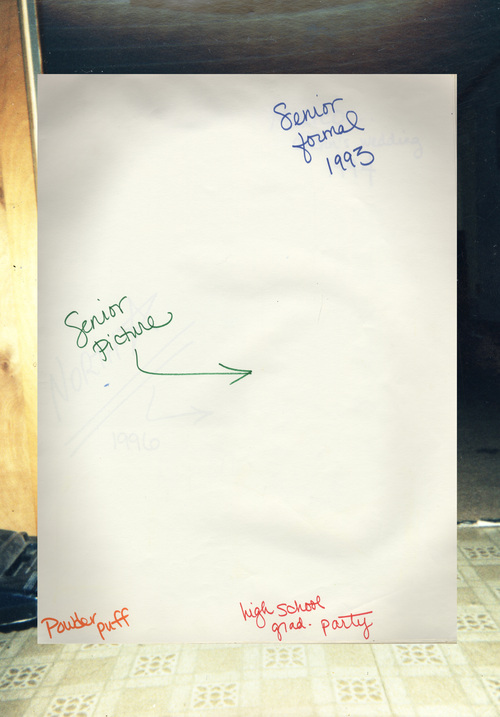 Senior
formal
1993
Senior
Picture
1996
Powder
puff
high school
grad. party